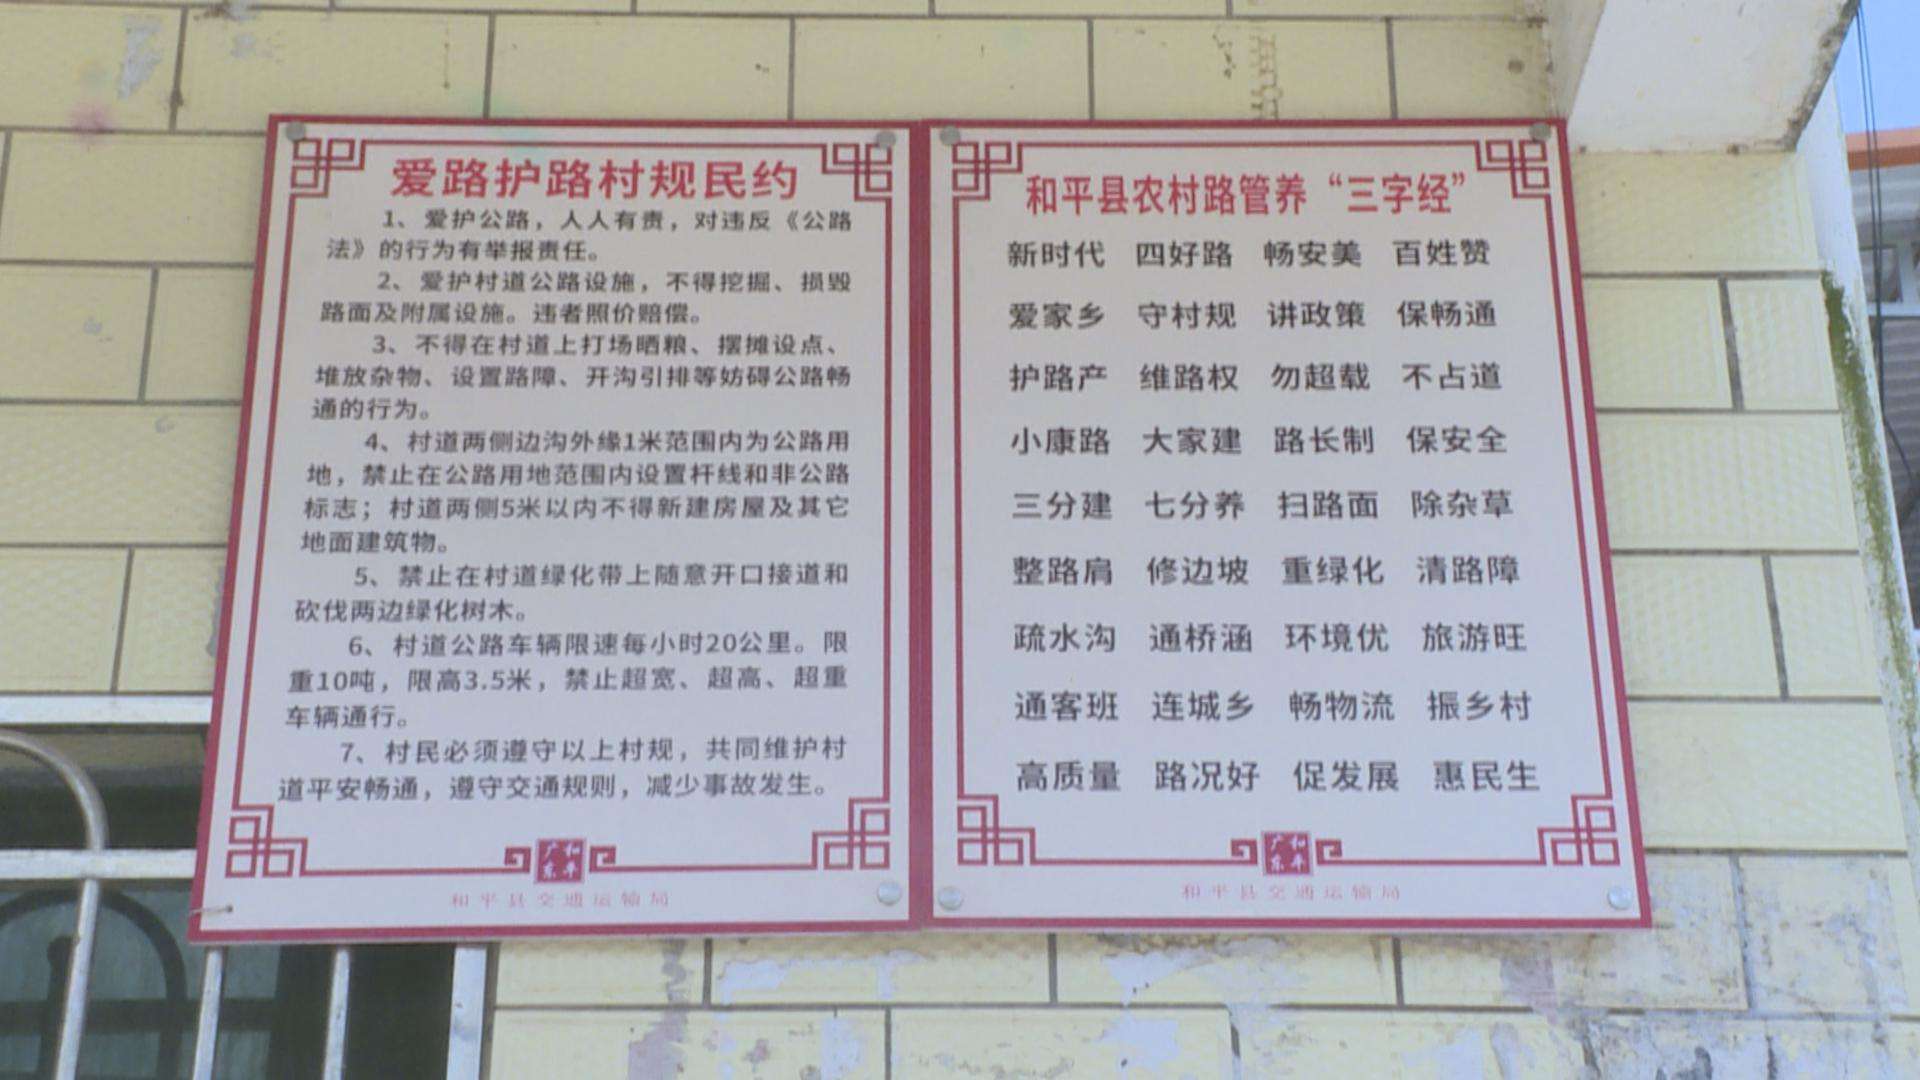 爱路护路村规民约
1、爱护公路，人人有责，对违反《公路
法》的行为有举报责任。
2、爱护村道公路设施，不得挖掘、损毁
路面及附属设施。违者照价赔偿。
3、不得在村道上打场晒粮、摆摊设点、
堆放杂物、设置路障、开沟引排等妨碍公路畅
通的行为。
4、村道两侧边沟外缘1米范围内为公路用
地，禁止在公路用地范围内设置杆线和非公路
标志；村道两侧5米以内不得新建房屋及其它
地面建筑物。
5、禁止在村道绿化带上随意开口接道和
砍伐两边绿化树木。
6、村道公路车辆限速每小时20公里。限
重10吨，限高3.5米，禁止超宽、超高、超重
车辆通行。
7、村民必须遵守以上村规，共同维护村
道平安畅通，遵守交通规则，减少事故发生。
广东 和平
和平县交通运输局
和平县农村路管养“三字经”
新时代 四好路 畅安美 百姓赞
爱家乡 守村规 讲政策 保畅通
护路产 维路权 勿超载 不占道
小康路 大家建 路长制 保安全
三分建 七分养 扫路面 除杂草
整路肩 修边坡 重绿化 清路障
疏水沟 通桥涵 环境优 旅游旺
通客班 连城乡 畅物流 振乡村
高质量 路况好 促发展 惠民生
广东 和平
和平县交通运输局